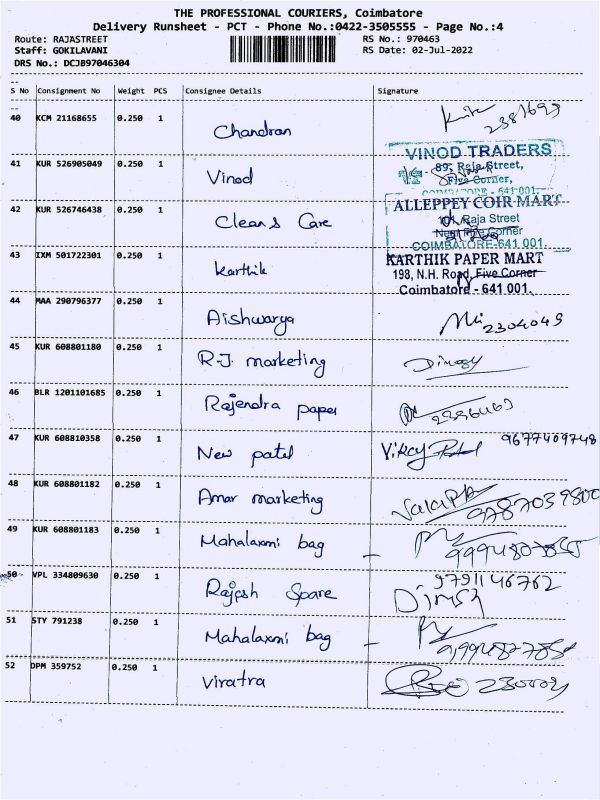 THE PROFESSIONAL COURIERS, Coimbatore
Delivery Runsheet - PCT - Phone No.:0422-3505555 - Page No.:4
Route: RAJASTREET RS No.: 970463
Staff: GOKILAVANI RS Date: 02-Jul-2022
DRS No.: DCJB97046304
S No Consignment No Weight PCS Consignee Details Signature
40 KCM 21168655 0.250 1 Chandran
41 KUR 526905049 0.250 1 Vinod
VINOD TRADERS
89, Raja Street,
Five Corner,
COIMBATORE - 641 001.
42 KUR 526746438 0.250 1 Clean & Care
ALLEPPEY COIR MART
101, Raja Street
Near Five Corner
COIMBATORE-641 001.
43 IXM 501722301 0.250 1 Karthik
KARTHIK PAPER MART
198, N.H. Road, Five Corner
Coimbatore - 641 001.
44 MAA 290796377 0.250 1 Aishwarya 2304049
45 KUR 608801180 0.250 1 R.J. marketing
46 BLR 1201101685 0.250 1 Rajendra paper
47 KUR 608810358 0.250 1 New patel 9677409748
48 KUR 608801182 0.250 1 Amar marketing 9787039800
49 KUR 608801183 0.250 1 Mahalaxmi bag
50 VPL 334809630 0.250 1 Rajesh Spare 9791146762
Dinesh
51 STY 791238 0.250 1 Mahalaxmi bag
52 DPM 359752 0.250 1 Viratra